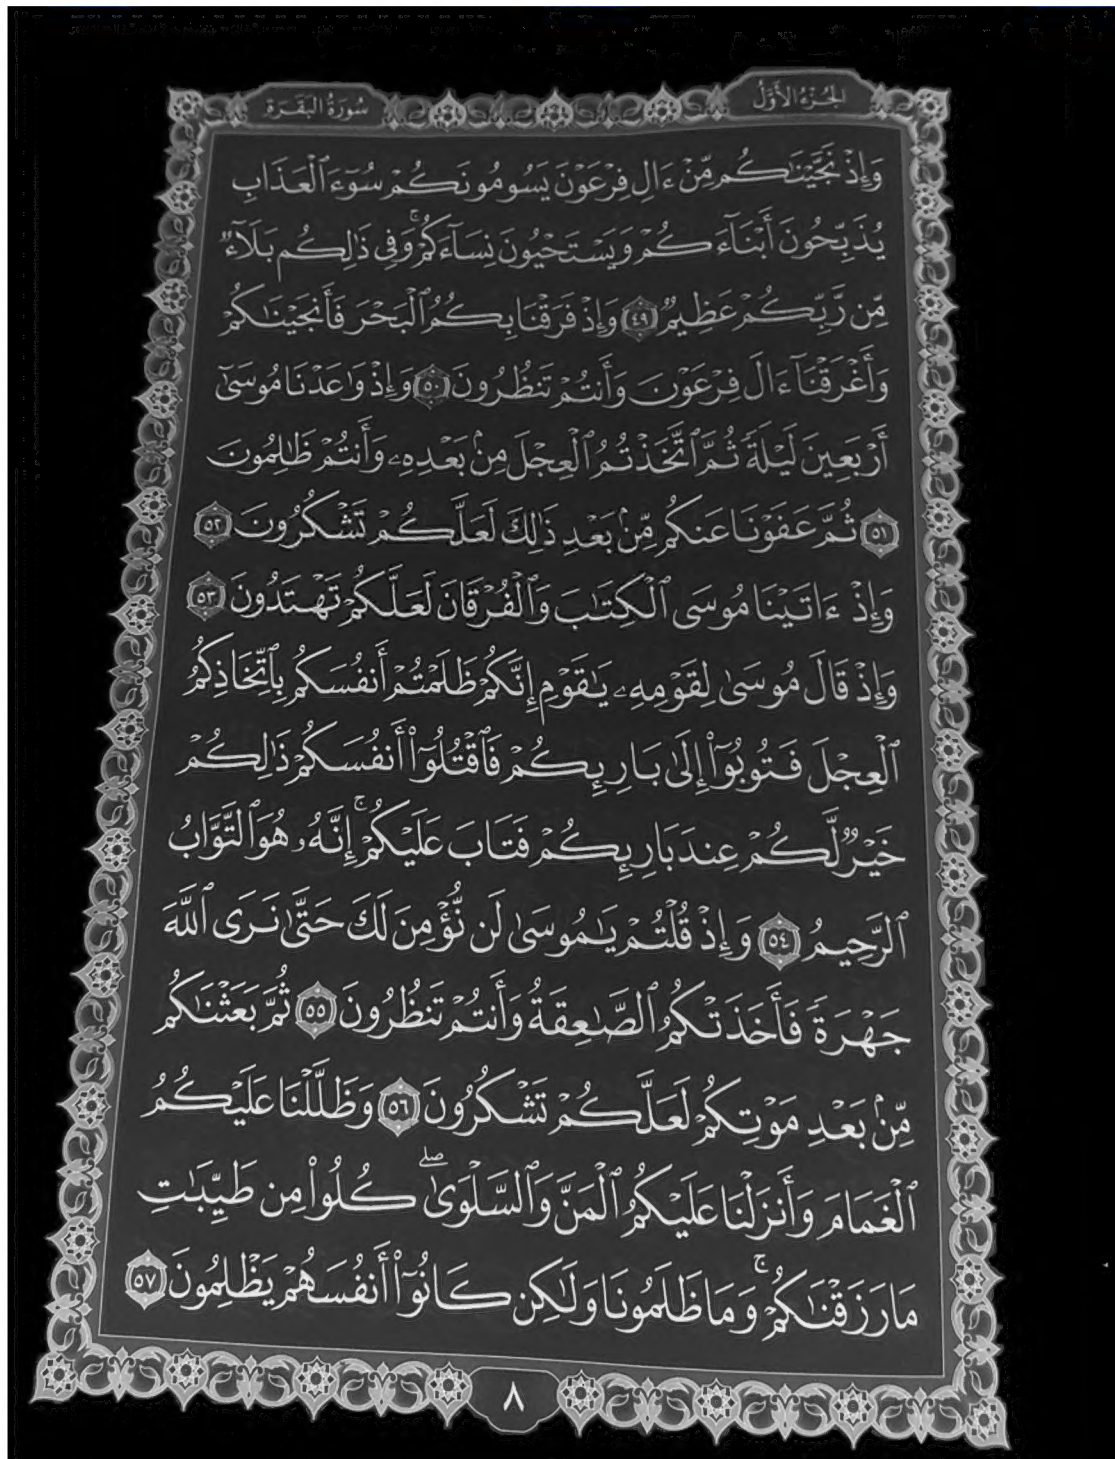 الجزء الأول
سورة البقرة
وَإِذْ نَجَّيْنَٰكُم مِّنْ ءَالِ فِرْعَوْنَ يَسُومُونَكُمْ سُوٓءَ ٱلْعَذَابِ
يُذَبِّحُونَ أَبْنَآءَكُمْ وَيَسْتَحْيُونَ نِسَآءَكُمْ ۚ وَفِى ذَٰلِكُم بَلَآءٌ
مِّن رَّبِّكُمْ عَظِيمٌ ٤٩ وَإِذْ فَرَقْنَا بِكُمُ ٱلْبَحْرَ فَأَنجَيْنَٰكُمْ
وَأَغْرَقْنَآ ءَالَ فِرْعَوْنَ وَأَنتُمْ تَنظُرُونَ ٥٠ وَإِذْ وَٰعَدْنَا مُوسَىٰٓ
أَرْبَعِينَ لَيْلَةً ثُمَّ ٱتَّخَذْتُمُ ٱلْعِجْلَ مِنۢ بَعْدِهِۦ وَأَنتُمْ ظَٰلِمُونَ
٥١ ثُمَّ عَفَوْنَا عَنكُم مِّنۢ بَعْدِ ذَٰلِكَ لَعَلَّكُمْ تَشْكُرُونَ ٥٢
وَإِذْ ءَاتَيْنَا مُوسَى ٱلْكِتَٰبَ وَٱلْفُرْقَانَ لَعَلَّكُمْ تَهْتَدُونَ ٥٣
وَإِذْ قَالَ مُوسَىٰ لِقَوْمِهِۦ يَٰقَوْمِ إِنَّكُمْ ظَلَمْتُمْ أَنفُسَكُم بِٱتِّخَاذِكُمُ
ٱلْعِجْلَ فَتُوبُوٓا۟ إِلَىٰ بَارِئِكُمْ فَٱقْتُلُوٓا۟ أَنفُسَكُمْ ذَٰلِكُمْ
خَيْرٌ لَّكُمْ عِندَ بَارِئِكُمْ فَتَابَ عَلَيْكُمْ ۚ إِنَّهُۥ هُوَ ٱلتَّوَّابُ
ٱلرَّحِيمُ ٥٤ وَإِذْ قُلْتُمْ يَٰمُوسَىٰ لَن نُّؤْمِنَ لَكَ حَتَّىٰ نَرَى ٱللَّهَ
جَهْرَةً فَأَخَذَتْكُمُ ٱلصَّٰعِقَةُ وَأَنتُمْ تَنظُرُونَ ٥٥ ثُمَّ بَعَثْنَٰكُم
مِّنۢ بَعْدِ مَوْتِكُمْ لَعَلَّكُمْ تَشْكُرُونَ ٥٦ وَظَلَّلْنَا عَلَيْكُمُ
ٱلْغَمَامَ وَأَنزَلْنَا عَلَيْكُمُ ٱلْمَنَّ وَٱلسَّلْوَىٰ ۖ كُلُوا۟ مِن طَيِّبَٰتِ
مَا رَزَقْنَٰكُمْ ۚ وَمَا ظَلَمُونَا وَلَٰكِن كَانُوٓا۟ أَنفُسَهُمْ يَظْلِمُونَ ٥٧
٨